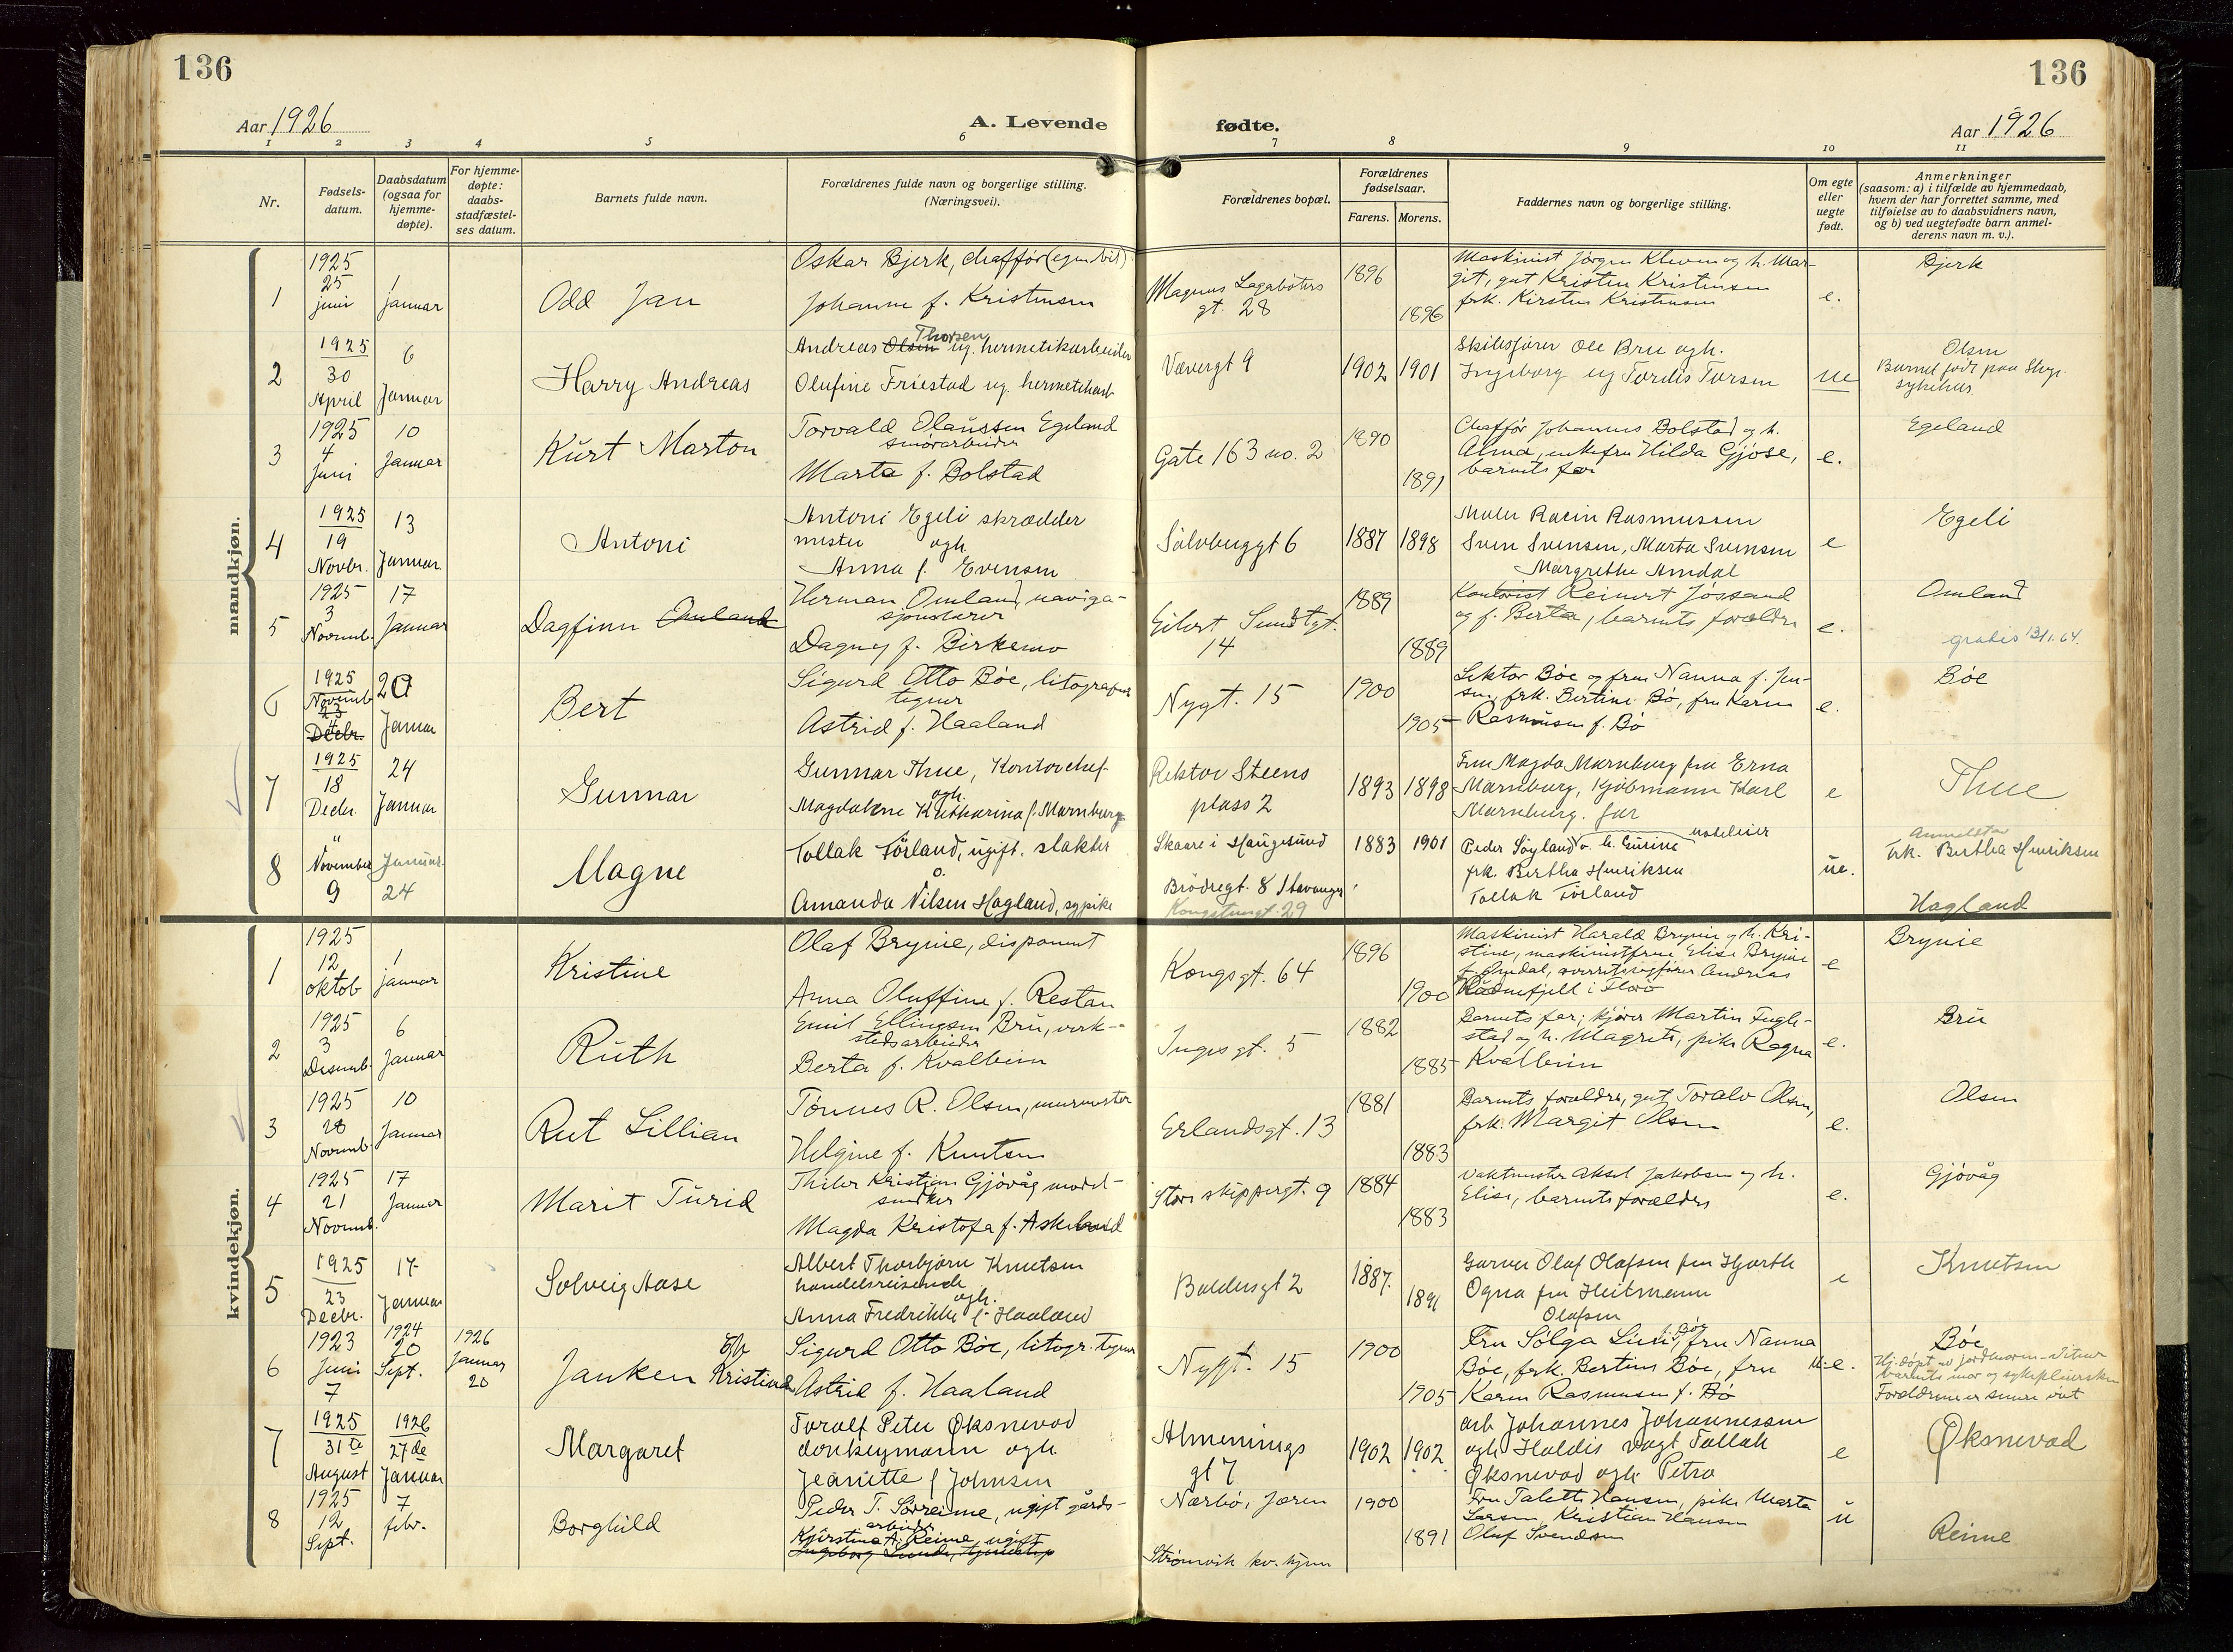 136
136
Aar 1926
A. Levende
fødte.
Aar 1926
1 2 3 4 5 6 7 8 9 10 11
Nr.
Fødsels-
datum.
Daabsdatum
(ogsaa for
hjemme-
døpte).
For hjemme-
døpte:
daabs-
stadfæstel-
ses datum.
Barnets fulde navn.
Forældrenes fulde navn og borgerlige stilling.
(Næringsvei).
Forældrenes bopæl.
Forældrenes
fødselsaar.
Farens. Morens.
Faddernes navn og borgerlige stilling.
Om egte
eller
uegte
født.
Anmerkninger
(saasom: a) i tilfælde av hjemmedaab,
hvem der har forrettet samme, med
tilføielse av to daabsvidners navn,
og b) ved uegtefødte barn anmel-
derens navn m. v.).
mandkjøn.
1
1925
25
juni
1
januar
Odd Jan
Oskar Bjerk, chaffør (egen bil)
Johanne f. Kristensen
Magnus Lagabøters
gt. 28
1896
1896
Maskinist Jørgen Kleven og h. Mar-
git, gut Kristen Kristensen
frk. Kirsten Kristensen
e.
Bjerk
2
1925
30
April
6
Januar
Harry Andreas
Thorsen
Andreas Olsen ug. hermetikarbeider
Olufine Friestad ug. hermetikarb
Vævergt 9
1902
1901
Skibsfører Ole Bru ogh.
Ingeborg ug Tordis Torsen
ue
Olsen
Barnet født paa Stvgr.
sykehus
3
1925
4
Juni
10
Januar
Kurt Marton
Torvald Olaussen Egeland
smørarbeider
Marta f. Bolstad
Gate 163 no. 2
1890
1891
Chaffør Johannes Bolstad og h.
Alma, enkefru Hilda Gjøse,
barnets far
e.
Egeland
4
1925
19
Novbr.
13
Januar
Antoni
Antoni Egeli skrædder
mester ogh.
Anna f. Evensen
Sølvberggt 6
1887
1898
Maler Racin Rasmussen
Sven Svensen, Marta Svensen
Margrethe Amdal
e
Egeli
5
1925
3
Novemb.
17
Januar
Dagfinn Omland
Herman Omland, naviga-
sjonslærer
Dagny f. Birkemo
Eilert Sundtgt.
14
1889
1889
Kontorist Reinert Jøssand
og f. Berta, barnets forældre
e.
Omland
gratis 13/1.64.
6
1925
Novemb
23
4
Decbr.
20
Januar
Bert
Sigurd Otto Bøe, litografisk
tegner
Astrid f. Haaland
Nygt. 15
1900
1905
Lektor Bøe og frue Nanna f. Jen-
sen, frk. Bertine Bø, fru Karen
Rasmusen f. Bø
e.
Bøe
7
1925
18
Decbr.
24
Januar
Gunnar
Gunnar Thue, Kontorchef
ogh.
Magdalene Katharina f. Marnburg
Rektor Steens
plass 2
1893
1898
Fru Magda Marnburg fru Erna
Marnburg, Kjøbmann Karl
Marnburg. far
e
Thue
8
"
November
9
Januar.
24
Magne
Tollak Törland, ugift. slakter
o.
Amanda Nilsen Hagland, sypike
Skaare i Haugesund
Brødregt. 8 Stavanger
Kongstungt. 29
1883
1901
Peder Søyland o. h. Gurine
frk. Bertha Henriksen
Tollak Törland
ue.
Anmeldstav
Frk. Bertha Henriksen
Hagland
kvindekjøn.
1
1925
12
oktob
1
januar
Kristine
Olaf Brynie, disponent
Anna Oluffine f. Restan
Kongsgt. 64
1896
1900
Maskinist Harald Brynie og h. Kri-
stine, maskinistfrue Elise Brynie
f. Amdal, overretssagfører Andreas
Kådnefjell i Florø
e
Brynie
2
1925
3
Desemb.
6
Januar
Ruth
Emil Ellingsen Bru, verk-
stedsarbeider
Berta f. Kvalheim
Ingesgt. 5
1882
1885
Barnets far, kjører Martin Fugle-
stad og h. Magrete, pike Ragna
Kvalheim
e.
Bru
3
1925
28
Novemb
10
Januar
Rut Lillian
Tønnes R. Olsen, murmester
Helgine f. Knutsen
Erlandsgt. 13
1881
1883
Barnets forældre, gut Toralv Olsen,
frk. Margit Olsen
e.
Olsen
4
1925
21
Novemb.
17
Januar
Marit Turid
Thiler Kristjan Gjøvåg model-
snedker
Magda Kristofa f. Askeland
Store skippergt. 9
1884
1883
Vaktmester Aksel Jakobsen og h.
Elise, barnets forældre
e.
Gjøvåg
5
1925
23
Decbr.
17
Januar
Solveig Aase
Albert Thorbjørn Knutsen
handelsreisende
ogh.
Anna Fredrikke f. Haaland
Baldersgt 2
1887.
1891
Garver Olaf Olafsen fru Hjørth
Ogna fru Heitmann
Olafsen
e
Knutsen
6
1923
Juni
7
1924
20
Sept.
1926
Januar
20
Janken Kristine
Sigurd Otto Bøe, litogr. tegner
Astrid f. Haaland
Nygt. 15
1900
1905
Fru Sølga Lima f. Bøe, fru Nanna
Bøe, frk. Bertine Bøe, fru
Karen Rasmusen f. Bø
u.e.
Bøe
Hj.døpt av jordmoren. Vitner
barnets mor og sykepleiersken
Forældrene er senere viet
7
1925
31te
August
1926
27de
Januar
Margaret
Toralf Peter Øksnevad
donkeymann ogh.
Jeanette f Johnsen
Almenings
gt 7
1902
1902
arb Johannes Johannessen
ogh Haldis vagt Tollak
Øksnevad ogh. Petra
e
Øksnevad
8
1925
12
Sept.
7
febr.
Borghild
Peder T. Sørreime, ugift gårds-
arbeider
Kjørstine A. Reime, ugift
Nærbø, Jæren
Strømvik kv. hjem
1900
1891
Fru Talette Hansen, pike Marta
Larsen, Kristian Hansen
Olaf Svendsen
u
Reime